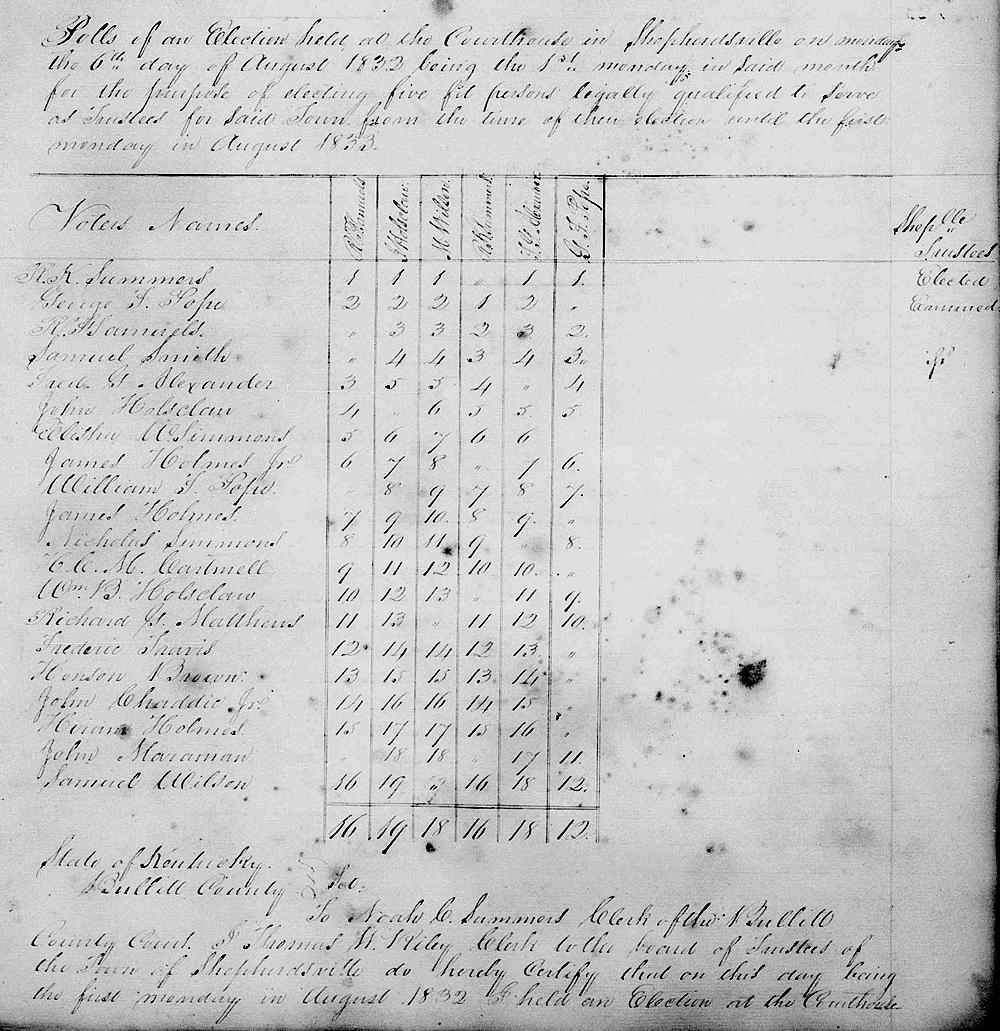 Polls of an Election held at the Courthouse in Shepherdsville on monday
the 6th day of August 1832 being the 1st monday in said month
for the purpose of electing five fit persons legally qualified to serve
as Trustees for said Town from the time of their election until the first
monday in August 1833.
Voters Names. R Samuels J Holsclaw M Wilson W Simmons F G Alexander G. F. Pope
Shep lle
Trustees
R. K. Summers 1 1 1 " 1 1. Elected
George F. Pope 2 2 2 1 2 " Examined
R. F Samuels. " 3 3 2 3 2.
Samuel Smith " 4 4 3 4 3"
Fred. G. Alexander 3 5 5 4 " 4
John Holsclaw 4 " 6 5 5. 5.
Elisha W Simmons 5 6 7 6 6
James Holmes Jr 6 7 8 " 7 6.
William F. Pope. " 8 9 7 8 7.
James Holmes. 7 9 10. 8 9. "
Nicholas Simmons 8 10 11 9 " 8.
H. C. M. Cartmell 9 11 12 10 10. "
Wm. B. Holsclaw 10 12 13 " 11 9.
Richard G. Matthews 11 13 " 11 12 10.
Frederic Travis 12 14 14 12 13 "
Henson Brown. 13 15 15 13 14 "
John Chaddic Jr. 14 16 16 14 15 "
Hiram Holmes. 15 17 17 15 16 "
John Maraman " 18 18 " 17 11
Samuel Wilson 16 19 " 16 18 12.
16 19 18 16 18 12.
State of Kentucky.
Bullitt County Sct.
To Noah C. Summers Clerk of the Bullitt
County Court. I Thomas W. Riley Clerk to the board of Trustees of
the Town of Shepherdsville do hereby Certify that on this day being
the first monday in August 1832 I held an Election at the Courthouse